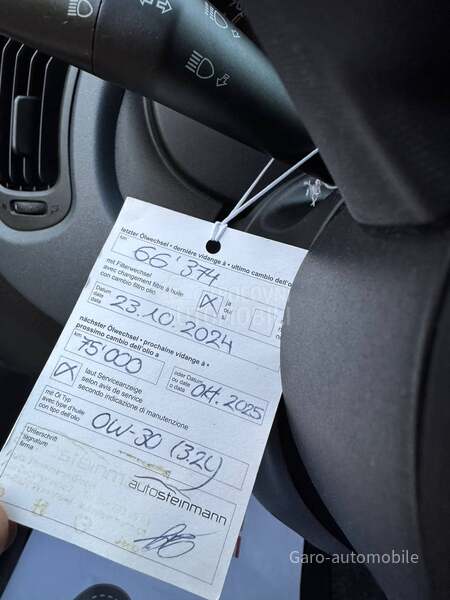 letzter Ölwechsel • dernière vidange à • ultimo cambio dell'o
km
66'374
mit Filterwechsel
avec changement filtre à huile
con cambio filtro olio
ja
oui
Datum
date
data
23.10.2024
nächster Ölwechsel • prochaine vidange à •
prossimo cambio dell'olio a
km
75'000
oder Datum
ou date
o data
Okt. 2025
laut Serviceanzeige
selon avis de service
secondo indicazione di manutenzione
mit Öl Typ
avec type d'huile
con tipo dell'olio
0W-30 (3.2L)
Unterschrift
signature
firma
autosteinmann
Garo-automobile